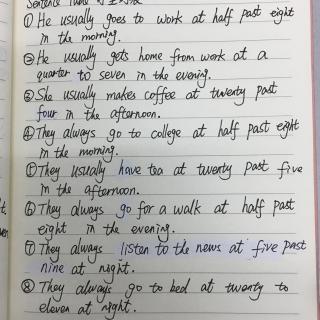 Sentence
① He usually goes to work at half past eight
in the morning.
② He usually gets home from work at a
quarter to seven in the evening.
③ She usually makes coffee at twenty past
four in the afternoon.
④ They always go to college at half past eight
in the morning.
⑤ They usually have tea at twenty past five
in the afternoon.
⑥ They always go for a walk at half past
eight in the evening.
⑦ They always listen to the news at five past
nine at night.
⑧ They always go to bed at twenty to
eleven at night.